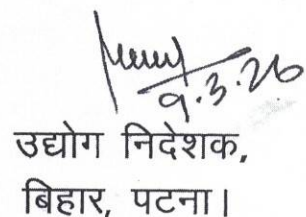 9.3.26
उद्योग निदेशक,
बिहार, पटना।